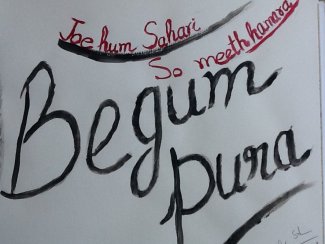 Joe hum Sahari
So meeth hamara
Begum
pura